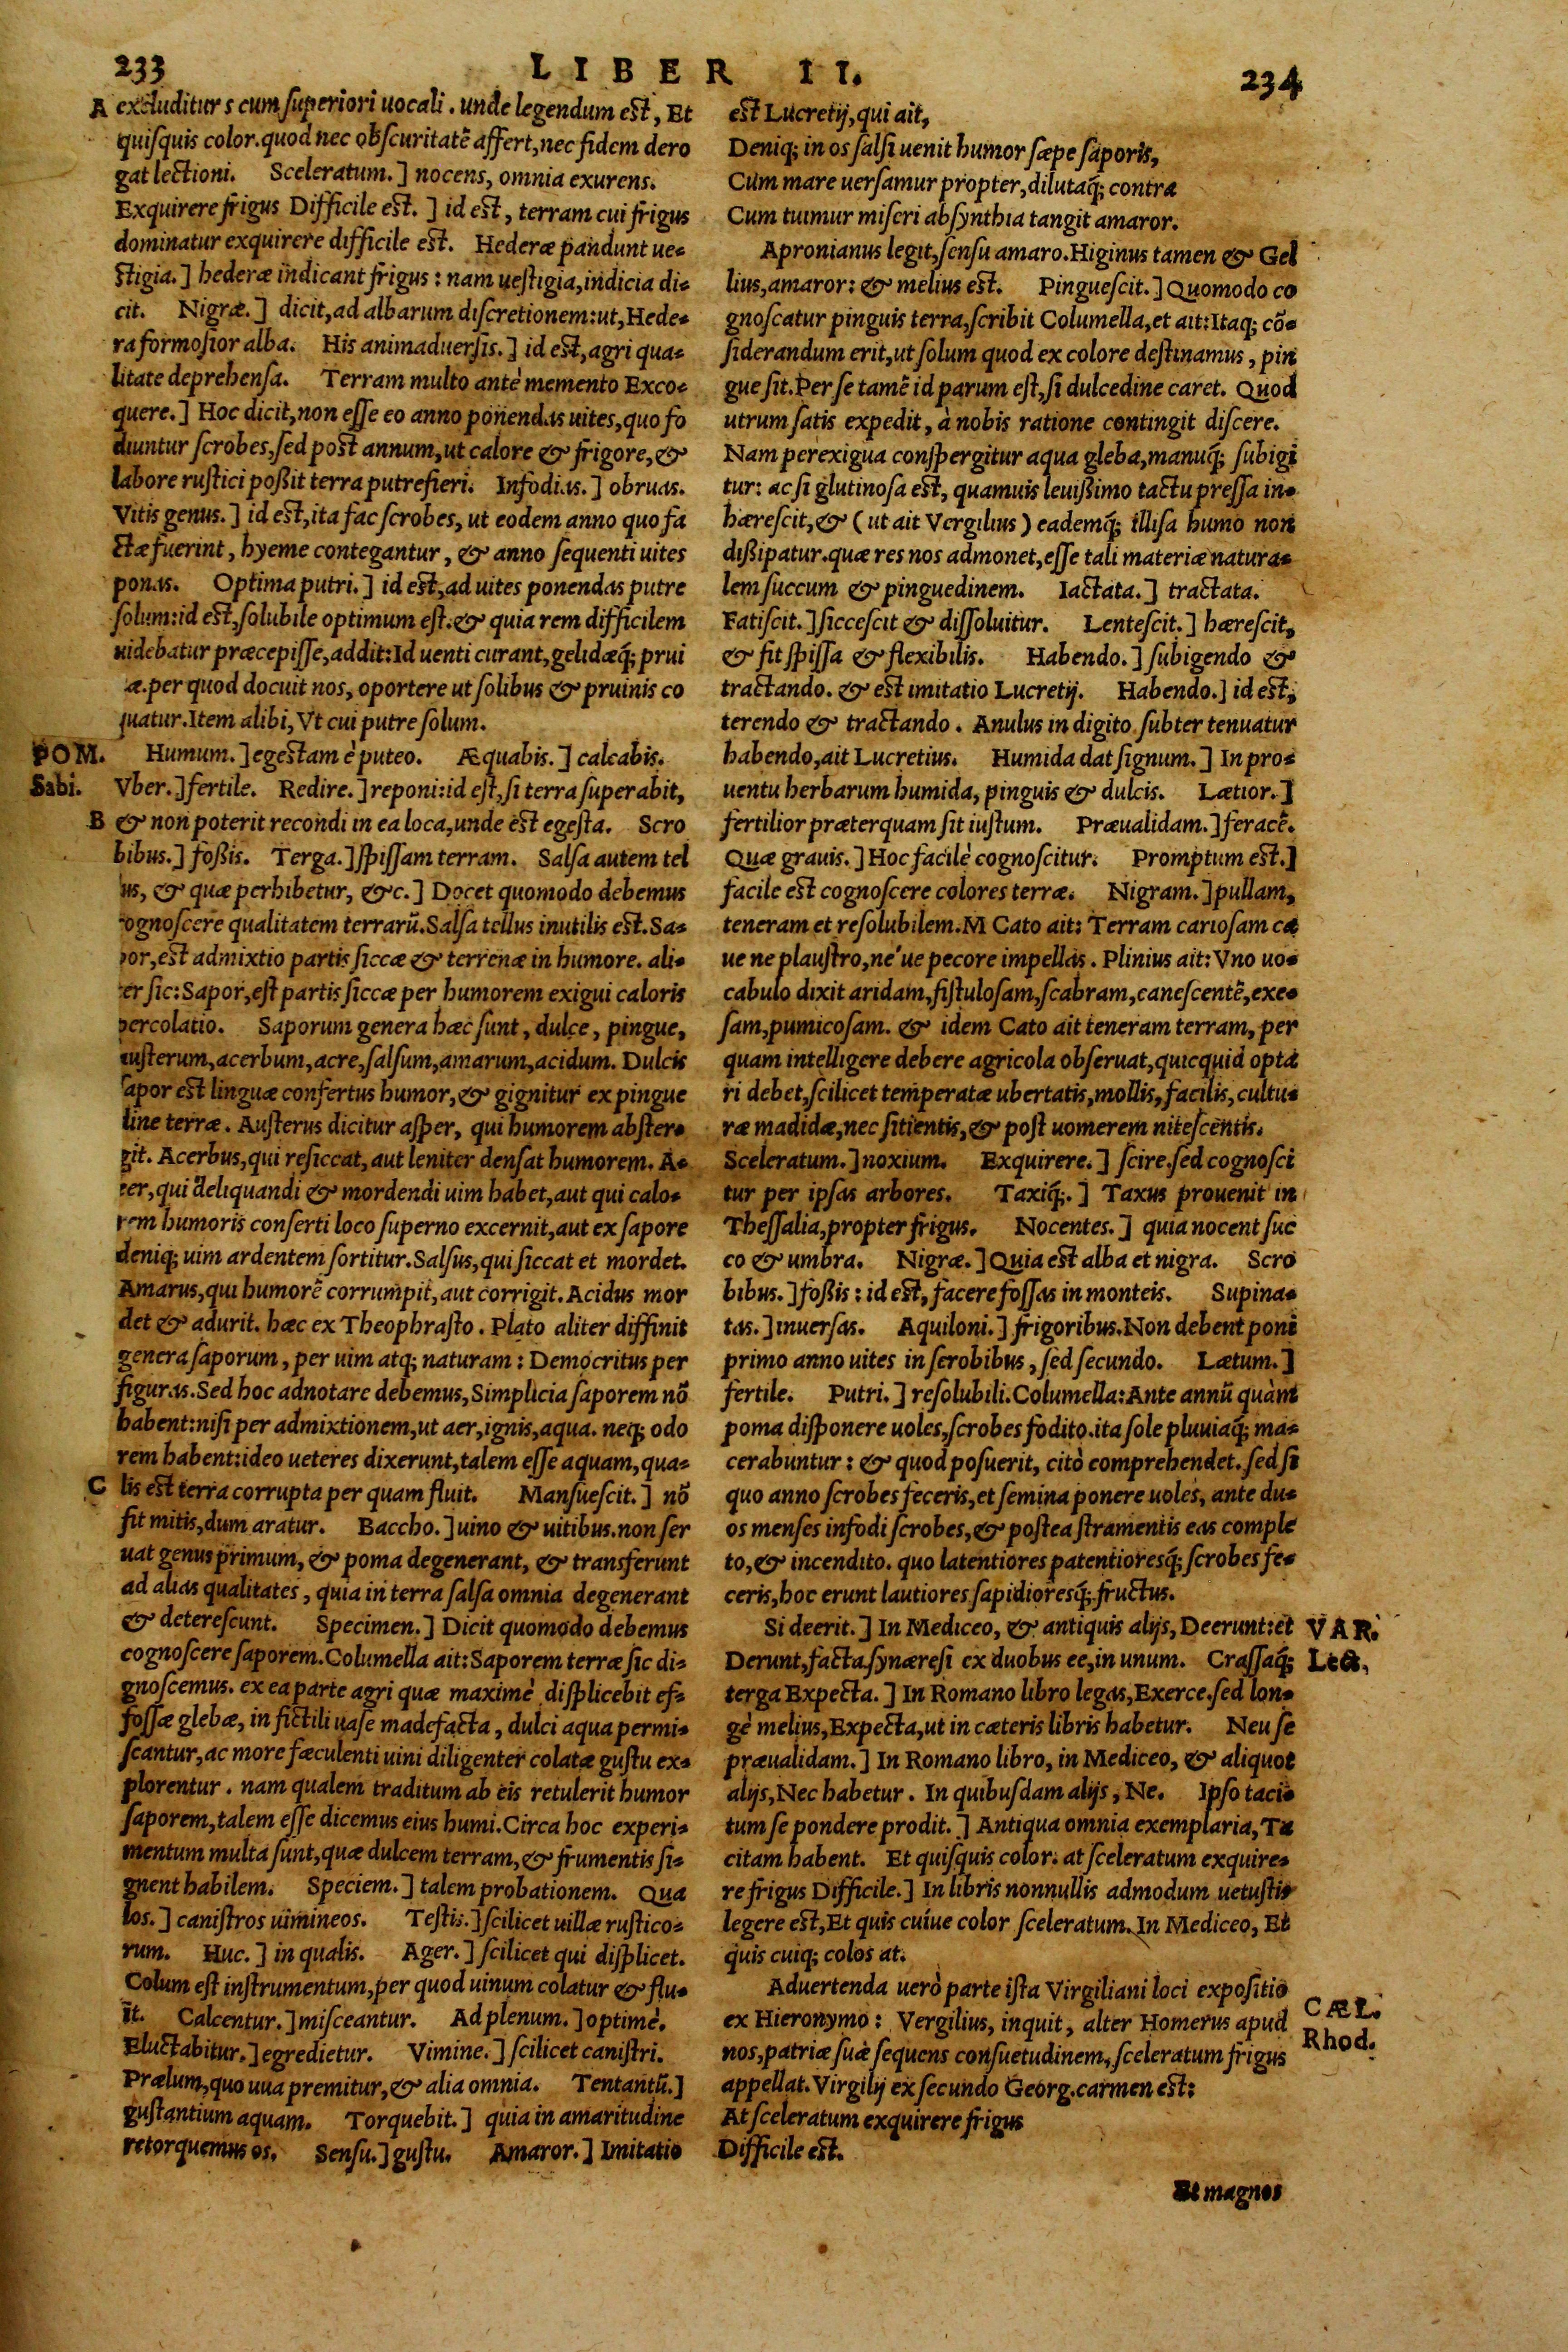 233
LIBER II.
234
A excluditur s cum superiori uocali. unde legendum est, Et
quisquis color. quod nec obscuritatē affert, nec fidem dero
gat lectioni. Sceleratum.] nocens, omnia exurens.
Exquirere frigus Difficile est.] id est, terram cui frigus
dominatur exquirere difficile est. Hederæ pandunt ue-
stigia.] hederæ indicant frigus: nam uestigia, indicia di-
cit. Nigræ.] dicit, ad albarum discretionem: ut, Hede-
ra formosior alba. His animaduersis.] id est, agri qua-
litate deprehensa. Terram multo antè memento Exco-
quere.] Hoc dicit, non esse eo anno ponendas uites, quo fo
diuntur scrobes, sed post annum, ut calore & frigore, &
labore rustici poßit terra putrefieri. Infodias.] obruas.
Vitis genus.] id est, ita fac scrobes, ut eodem anno quo fa
ctæ fuerint, hyeme contegantur, & anno sequenti uites
ponas. Optima putri.] id est, ad uites ponendas putre
solum: id est, solubile optimum est. & quia rem difficilem
uidebatur præcepisse, addit: Id uenti curant, gelidæq; prui
æ. per quod docuit nos, oportere ut solibus & pruinis co
quatur. Item alibi, Vt cui putre solum.
POM. Humum.] egestam è puteo. Æquabis.] calcabis.
Sabi. Vber.] fertile. Redire.] reponi: id est, si terra superabit,
B & non poterit recondi in ea loca, unde est egesta. Scro
bibus.] foßis. Terga.] spissam terram. Salsa autem tel
us, & quæ perhibetur, &c.] Docet quomodo debemus
cognoscere qualitatem terrarū. Salsa tellus inutilis est. Sa-
por, est admixtio partis siccæ & terrenæ in humore. ali-
ter sic: Sapor, est partis siccæ per humorem exigui caloris
percolatio. Saporum genera hæc sunt, dulce, pingue,
austerum, acerbum, acre, salsum, amarum, acidum. Dulcis
sapor est linguæ confertus humor, & gignitur ex pingue
dine terræ. Austerus dicitur asper, qui humorem abster-
git. Acerbus, qui resiccat, aut leniter densat humorem. A-
cer, qui deliquandi & mordendi uim habet, aut qui calo-
rem humoris conserti loco superno excernit, aut ex sapore
deniq; uim ardentem sortitur. Salsus, qui siccat et mordet.
Amarus, qui humorē corrumpit, aut corrigit. Acidus mor
det & adurit. hæc ex Theophrasto. Plato aliter diffinit
genera saporum, per uim atq; naturam: Democritus per
figuras. Sed hoc adnotare debemus, Simplicia saporem nō
habent: nisi per admixtionem, ut aer, ignis, aqua. neq; odo
rem habent: ideo ueteres dixerunt, talem esse aquam, qua-
C lis est terra corrupta per quam fluit. Mansuescit.] nō
fit mitis, dum aratur. Baccho.] uino & uitibus. non ser
uat genus primum, & poma degenerant, & transferunt
ad alias qualitates, quia in terra salsa omnia degenerant
& deterescunt. Specimen.] Dicit quomodo debemus
cognoscere saporem. Columella ait: Saporem terræ sic di-
gnoscemus. ex ea parte agri quæ maximè displicebit ef-
fossæ glebæ, in fictili uase madefacta, dulci aqua permi-
scantur, ac more fæculenti uini diligenter colatæ gustu ex-
plorentur. nam qualem traditum ab eis retulerit humor
saporem, talem esse dicemus eius humi. Circa hoc experi-
mentum multa sunt, quæ dulcem terram, & frumentis si-
gnent habilem. Speciem.] talem probationem. Qua
los.] canistros uimineos. Testis.] scilicet uillæ rustico-
rum. Huc.] in qualis. Ager.] scilicet qui displicet.
Colum est instrumentum, per quod uinum colatur & flu-
it. Calcentur.] misceantur. Ad plenum.] optimè.
Eluctabitur.] egredietur. Vimine.] scilicet canistri.
Prælum, quo uua premitur, & alia omnia. Tentantū.]
gustantium aquam. Torquebit.] quia in amaritudine
retorquemus os. Sensu.] gustu. Amaror.] Imitatio
est Lucretij, qui ait,
Deniq; in os salsi uenit humor sæpe saporis,
Cùm mare uersamur propter, dilutaq́; contra
Cum tuimur misceri absynthia tangit amaror.
Apronianus legit, sensu amaro. Higinus tamen & Gel
lius, amaror: & melius est. Pinguescit.] Quomodo co
gnoscatur pinguis terra, scribit Columella, et ait: Itaq; cō-
siderandum erit, ut solum quod ex colore destinamus, pin
gue sit. Per se tamē id parum est, si dulcedine caret. Quod
utrum satis expedit, à nobis ratione contingit discere.
Nam perexigua conspergitur aqua gleba, manuq́; subigi
tur: ac si glutinosa est, quamuis leuißimo tactu pressa in-
hærescit, & (ut ait Vergilius) eademq́; illisa humo non
dißipatur. quæ res nos admonet, esse tali materiæ natura-
lem succum & pinguedinem. Iactata.] tractata.
Fatiscit.] siccescit & dissoluitur. Lentescit.] hærescit,
& fit spissa & flexibilis. Habendo.] subigendo &
tractando. & est imitatio Lucretij. Habendo.] id est,
terendo & tractando. Anulus in digito subter tenuatur
habendo, ait Lucretius. Humida dat signum.] In pro-
uentu herbarum humida, pinguis & dulcis. Lætior.]
fertilior præterquam sit iustum. Præualidam.] feracē.
Quæ grauis.] Hoc facilè cognoscitur. Promptum est.]
facile est cognoscere colores terræ. Nigram.] pullam,
teneram et resolubilem. M Cato ait: Terram cariosam ca
ue ne plaustro, né ue pecore impellas. Plinius ait: Vno uo-
cabulo dixit aridam, fistulosam, scabram, canescentē, exe-
sam, pumicosam. & idem Cato ait teneram terram, per
quam intelligere debere agricola obseruat, quicquid opta
ri debet, scilicet temperatæ ubertatis, mollis, facilis, cultu-
ræ madidæ, nec sitientis, & post uomerem nitescentis.
Sceleratum.] noxium. Exquirere.] scire. sed cognosci
tur per ipsas arbores. Taxiq́;.] Taxus prouenit in
Thessalia, propter frigus. Nocentes.] quia nocent suc
co & umbra. Nigræ.] Quia est alba et nigra. Scro
bibus.] foßis: id est, facere fossas in monteis. Supina-
tas.] inuersas. Aquiloni.] frigoribus. Non debent poni
primo anno uites in scrobibus, sed secundo. Lætum.]
fertile. Putri.] resolubili. Columella: Ante annū quàm
poma disponere uoles, scrobes fodito. ita sole pluuiaq́; ma-
cerabuntur: & quod posuerit, citò comprehendet. sed si
quo anno scrobes feceris, et semina ponere uoles, ante du-
os menses infodi scrobes, & postea stramentis eas comple
to, & incendito. quo latentiores patentioresq́; scrobes fe-
ceris, hoc erunt lautiores sapidioresq́; fructus.
Si deerit.] In Mediceo, & antiquis alijs, Deerunt: et VAR.
Derunt, facta synæresi ex duobus ee, in unum. Crassaq́; Lect.
terga Expecta.] In Romano libro legas, Exerce. sed lon-
gè melius, Expecta, ut in cæteris libris habetur. Neu se
præualidam.] In Romano libro, in Mediceo, & aliquot
alijs, Nec habetur. In quibusdam alijs, Ne. Ipso taci-
tum se pondere prodit.] Antiqua omnia exemplaria, Ta
citam habent. Et quisquis color: at sceleratum exquire-
re frigus Difficile.] In libris nonnullis admodum uetustis
legere est, Et quis cuíue color sceleratum. In Mediceo, Et
quis cuiq; colos at.
Aduertenda uerò parte ista Virgiliani loci expositio CÆL.
ex Hieronymo: Vergilius, inquit, alter Homerus apud Rhod.
nos, patriæ suæ sequens consuetudinem, sceleratum frigus
appellat. Virgilij ex secundo Georg. carmen est:
At sceleratum exquirere frigus
Difficile est.
Et magnos